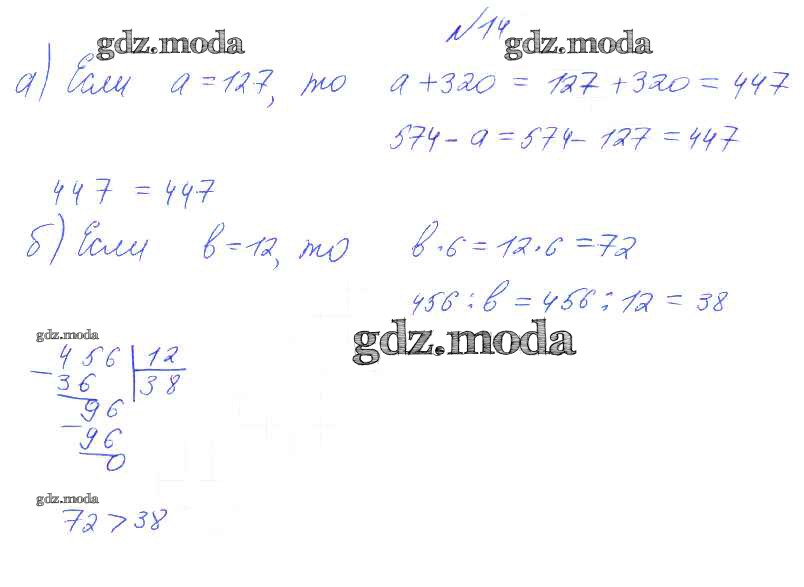 №14
gdz.moda gdz.moda
а) Если a = 127, то a + 320 = 127 + 320 = 447
574 - a = 574 - 127 = 447
447 = 447
б) Если в = 12, то в · 6 = 12 · 6 = 72
456 : в = 456 : 12 = 38
gdz.moda
gdz.moda
456 | 12
- 36 | 38
96
- 96
0
gdz.moda
72 > 38